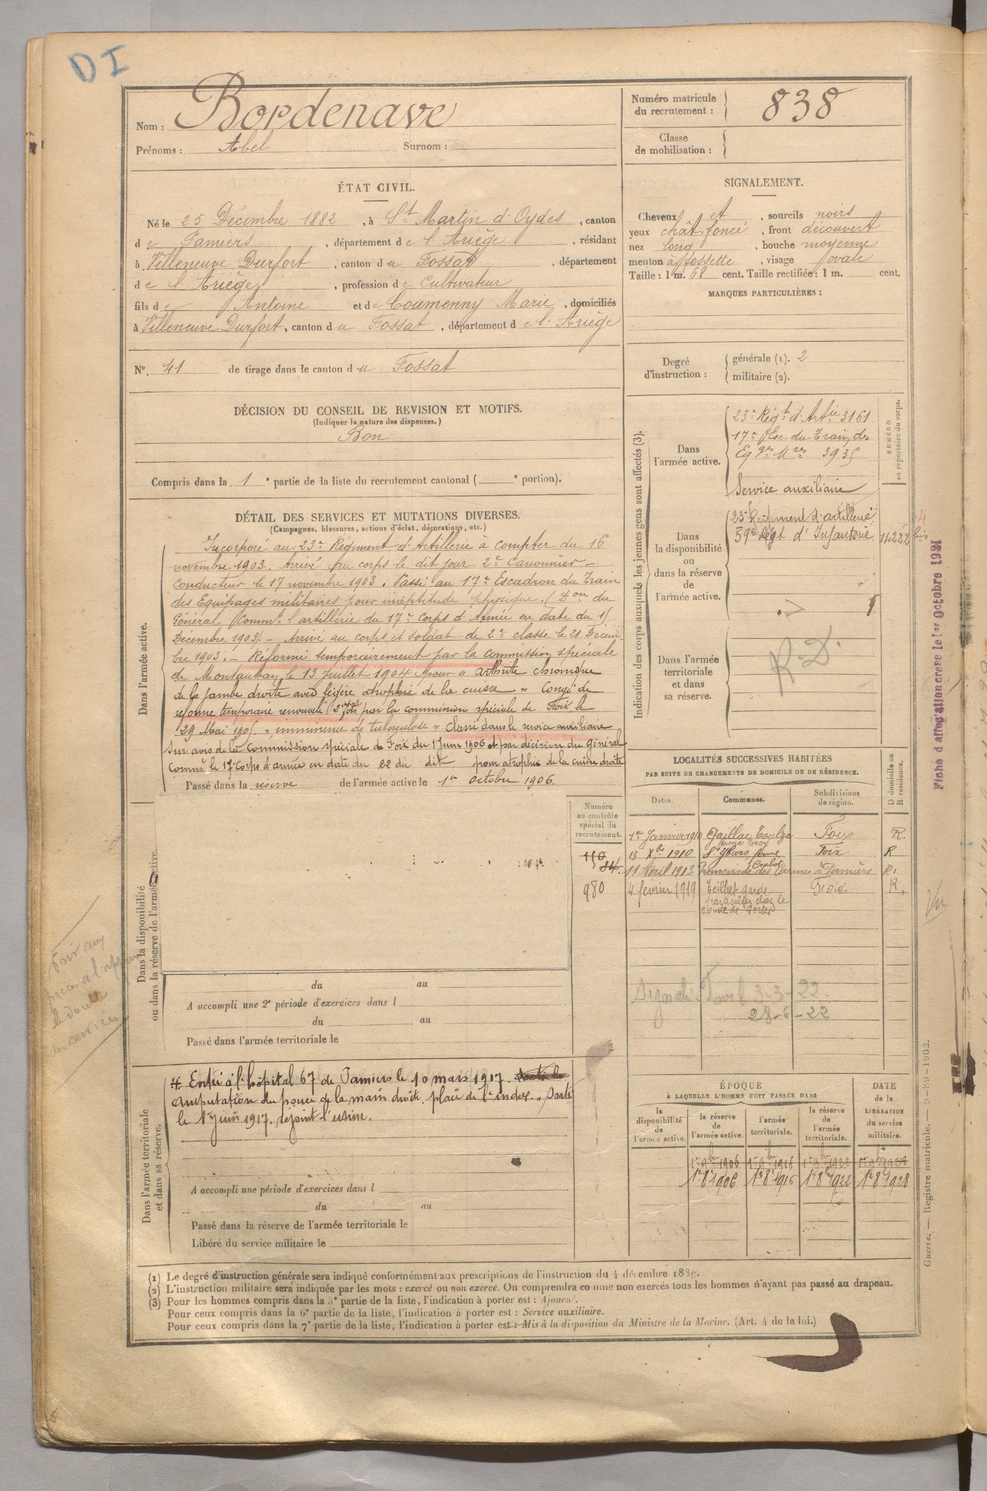 DI
Nom : Bordenave
Prénoms : Abel Surnom :
Numéro matricule du recrutement : 838
Classe de mobilisation :
ÉTAT CIVIL.
Né le 25 Décembre 1882, à St Martin d'Oydes, canton
de Pamiers, département de l'Ariège, résidant
à Villeneuve Durfort, canton du Fossat, département
de l'Ariège, profession de Cultivateur
fils de Antoine et de Coumenny Marie, domiciliés
à Villeneuve Durfort, canton du Fossat, département de l'Ariège
N° 41 de tirage dans le canton du Fossat
SIGNALEMENT.
Cheveux et, sourcils noirs
yeux chât foncé, front découvert
nez long, bouche moyenne
menton à fossette, visage ovale
Taille : 1 m. 68 cent. Taille rectifiée : 1 m. cent.
MARQUES PARTICULIÈRES :
Degré d'instruction : générale (1). 2
militaire (2).
DÉCISION DU CONSEIL DE REVISION ET MOTIFS.
(Indiquer la nature des dispenses.)
Bon
Compris dans la 1e partie de la liste du recrutement cantonal ( e portion).
DÉTAIL DES SERVICES ET MUTATIONS DIVERSES.
(Campagnes, blessures, actions d'éclat, décorations, etc.)
Dans l'armée active.
Incorporé au 23e Régiment d'Artillerie à compter du 16
novembre 1903. Arrivé au corps le dit jour 2e Canonnier
Conducteur le 17 novembre 1903. Passé au 17e Escadron du Train
des Équipages militaires pour inaptitude physique. (Don du
Général Comm. l'artillerie du 17e Corps d'Armée en date du 15
Décembre 1903). Arrivé au corps et soldat de 2e classe le 21 Décem-
bre 1903. Réformé temporairement par la commission spéciale
de Montauban le 13 Juillet 1904 pour « arthrite chronique
de la jambe droite avec légère atrophie de la cuisse » Congé de
réforme temporaire renouvelé par la commission spéciale de Foix le
29 Mai 1905 « imminence de tuberculose » Classé dans le service auxiliaire
sur avis de la Commission spéciale de Foix du 1 Juin 1906 et par décision du Général
Commt le 17e Corps d'armée en date du 22 du dit pour atrophie de la cuisse droite
Passé dans la réserve de l'armée active le 1er Octobre 1906.
Indication des corps auxquels les jeunes gens sont affectés (3).
NUMÉRO au répertoire du corps.
Dans l'armée active.
23e Régt d'Artie 3161
17e Esc. du Train des
Eq ges Mres 3935
Service auxiliaire
Dans la disponibilité ou dans la réserve de l'armée active.
23e Régiment d'artillerie
59e Régt d'Infanterie
Dans l'armée territoriale et dans sa réserve.
R.D.
Fiche d'affectation créée le 1er Octobre 1921
LOCALITÉS SUCCESSIVES HABITÉES
PAR SUITE DE CHANGEMENTS DE DOMICILE OU DE RÉSIDENCE.
Dates. Communes. Subdivisions de région. D domicile ou R résidence.
1er Janvier 1910 Gaillac Toulza Foix R
13 Xbre 1910 St Ybars Foix R
11 Avril 1913 Promenade des Pamiers R.
4 février 1919 garde particulier chez le Foix R.
3-3-22
28-6-22
Vu
Numéro au contrôle spécial du recrutement.
980
Dans la disponibilité ou dans la réserve de l'armée active.
du au
A accompli une 2e période d'exercices dans l
du au
Passé dans l'armée territoriale le
Dans l'armée territoriale et dans sa réserve.
Entré à l'hôpital 67 de Pamiers le 10 mars 1917.
Amputation du pouce de la main droite, plaie de l'index. Sorti
le 1er juin 1917. rejoint l'usine.
A accompli une période d'exercices dans l
du au
Passé dans la réserve de l'armée territoriale le
Libéré du service militaire le
ÉPOQUE
À LAQUELLE L'HOMME DOIT PASSER DANS
la disponibilité de l'armée active. la réserve de l'armée active. l'armée territoriale. la réserve de l'armée territoriale.
DATE de la LIBÉRATION du service militaire.
1er 8bre 1906 1er 8bre 1916 1er 8bre 1922 1er 8bre 1928
(1) Le degré d'instruction générale sera indiqué conformément aux prescriptions de l'instruction du 4 décembre 1889.
(2) L'instruction militaire sera indiquée par les mots : exercé ou non exercé. On comprendra comme non exercés tous les hommes n'ayant pas passé au drapeau.
(3) Pour les hommes compris dans la 5e partie de la liste, l'indication à porter est : Ajourné.
Pour ceux compris dans la 6e partie de la liste, l'indication à porter est : Service auxiliaire.
Pour ceux compris dans la 7e partie de la liste, l'indication à porter est : Mis à la disposition du Ministre de la Marine. (Art. 4 de la loi.)